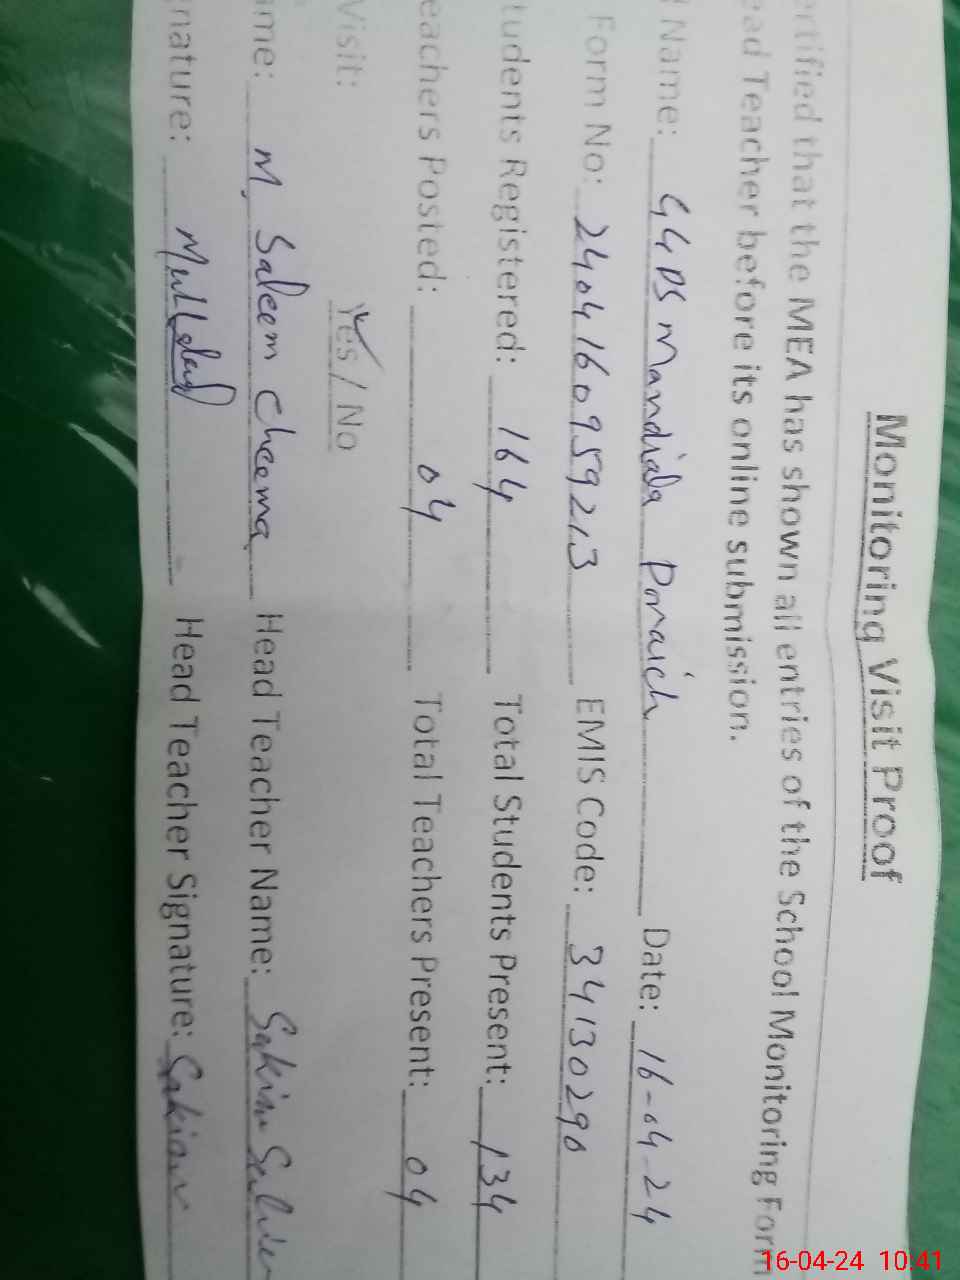 Monitoring Visit Proof
ertified that the MEA has shown all entries of the School Monitoring Form
ead Teacher before its online submission.
l Name: GGPS Mandiala Poraich Date: 16-04-24
Form No: 2404160959213 EMIS Code: 34130290
tudents Registered: 164 Total Students Present: 134
eachers Posted: 04 Total Teachers Present: 04
Visit: Yes / No
ame: M. Saleem Cheema Head Teacher Name:
gnature: Head Teacher Signature:
16-04-24 10:41